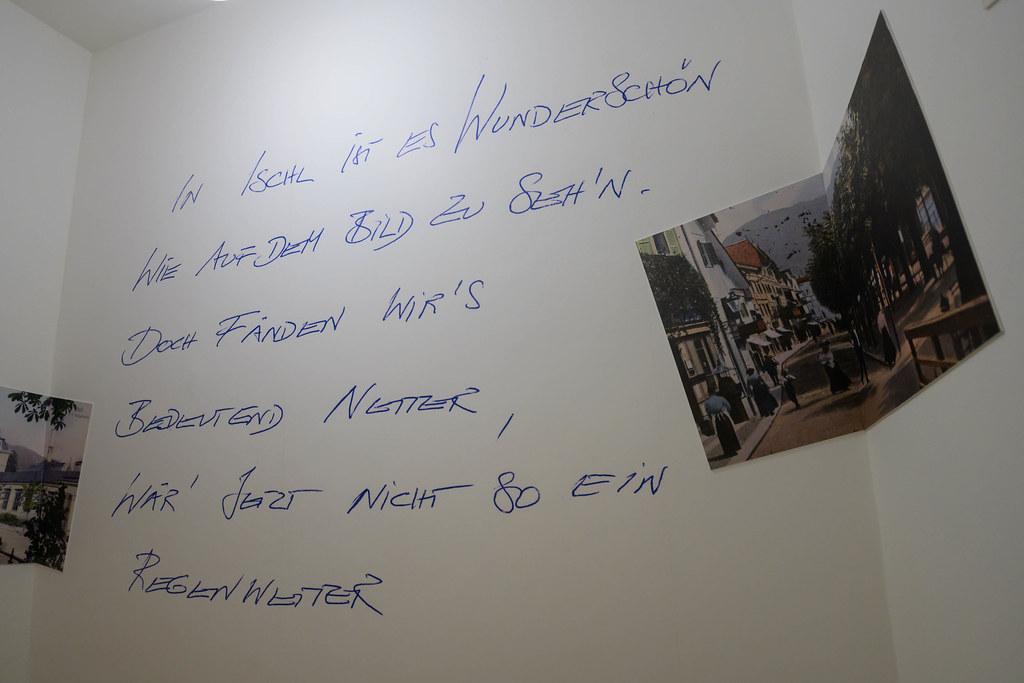 In Ischl ist es Wunderschön
Wie auf dem Bild zu seh'n.
Doch fänden wir's
Bedeutend netter,
Wär' jetzt nicht so ein
Regenwetter